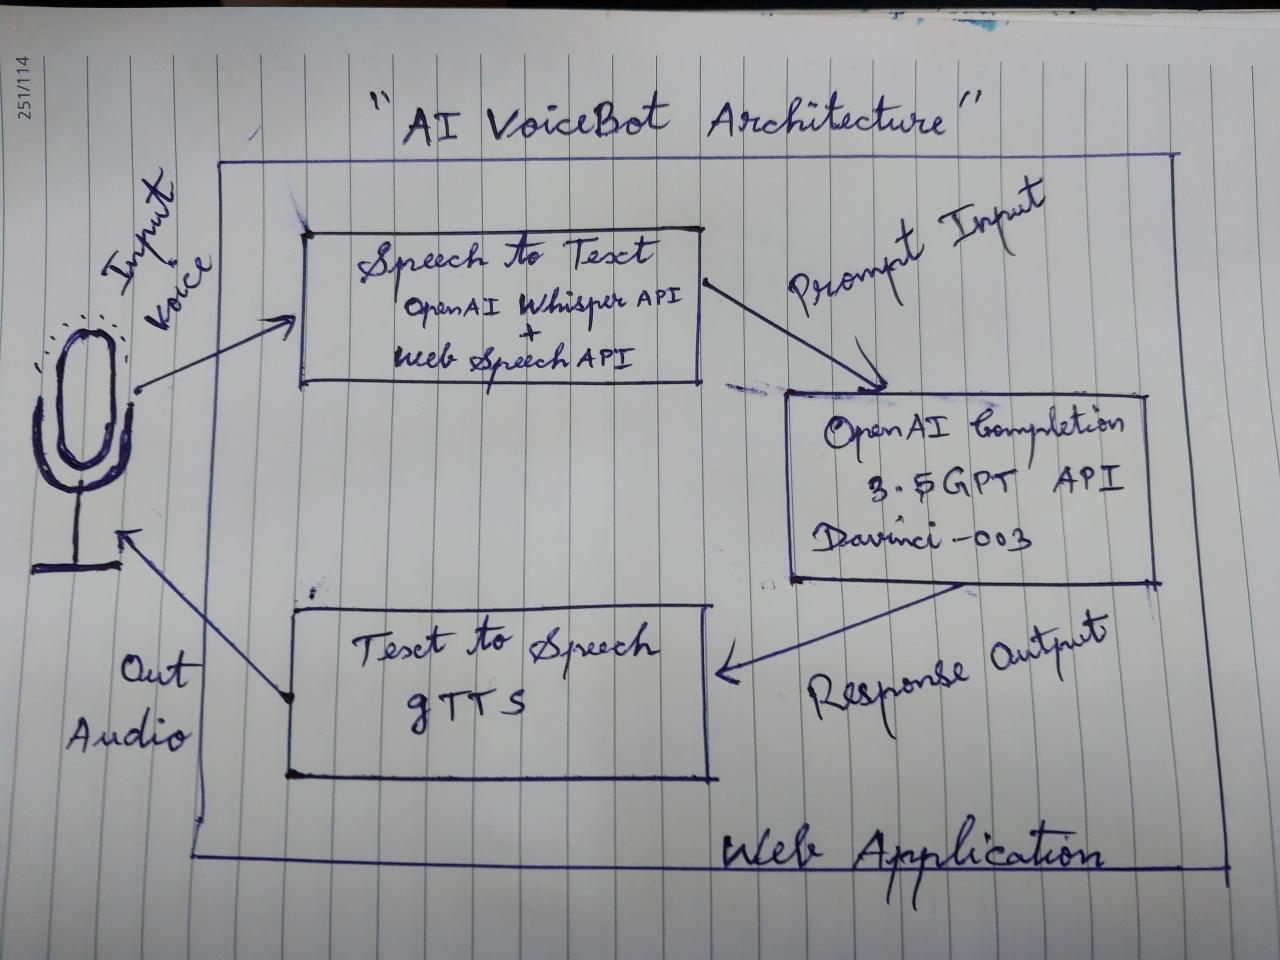 251/114
"AI VoiceBot Architecture"
Input
Voice
Speech to Text
OpenAI Whisper API
+
Web Speech API
Prompt Input
OpenAI Completion
3.5 GPT API
Davinci-003
Response Output
Text to Speech
gTTS
Out
Audio
Web Application